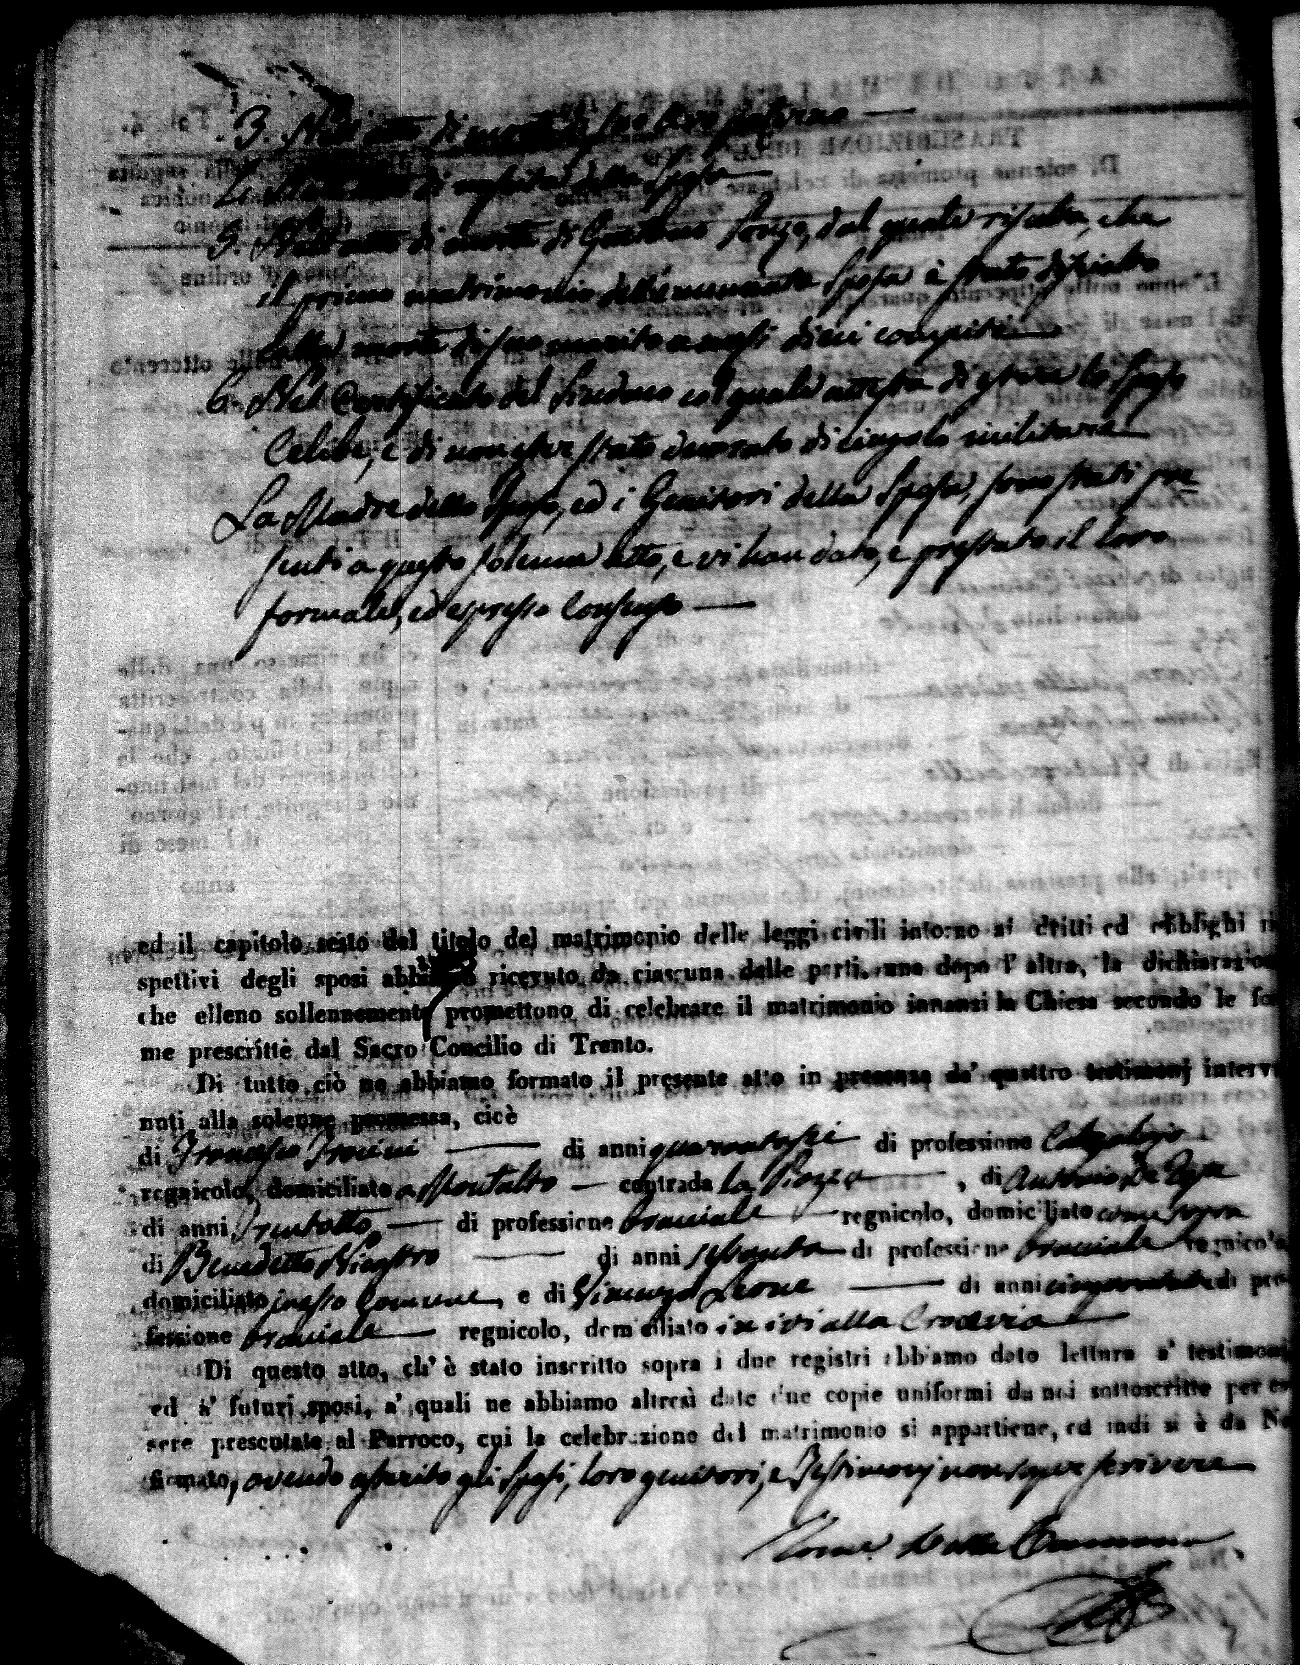 3. Nell'atto di morte di suo Avo paterno —
4. Nell'atto di nascita della Sposa —
5. Nell'atto di morte di Gaetano, dal quale risulta, che
il primo matrimonio dell'enunciata Sposa è stato disciolto
colla morte di suo marito a mesi dieci compiti —
6. Nel Certificato del Sindaco col quale attesta di essere lo Sposo
Celibe, e di non esser stato decorato di cingolo militare
La Madre dello Sposo, ed i Genitori della Sposa, sono stati pre=
senti a questo solenne atto, e vi han dato, e prestato il loro
formale, ed espresso Consenso —
ed il capitolo sesto del titolo del matrimonio delle leggi civili intorno ai dritti ed obblighi ri
spettivi degli sposi abbiamo ricevuto da ciascuna delle parti, una dopo l' altra, la dichiarazio
che elleno sollennemente promettono di celebrare il matrimonio innanzi la Chiesa secondo le for
me prescritte dal Sacro Concilio di Trento.
Di tutto ciò ne abbiamo formato il presente atto in presenza de' quattro testimonj interve
nuti alla solenne promessa, cioè
di Francesco — di anni quarantasei di professione Calzolajo
regnicolo, domiciliato a Montalto — contrada la Piazza —, di Antonio
di anni Trentotto, — di professione bracciale — regnicolo, domiciliato come sopra
di Benedetto Nicastro — di anni settanta di professione bracciale regnicolo
domiciliato in questo Comune, e di Vincenzo Leone — di anni di pro
fessione bracciale — regnicolo, domiciliato ivi alla
Di questo atto, ch' è stato inscritto sopra i due registri abbiamo dato lettura a' testimonj
ed a' futuri sposi, a' quali ne abbiamo altresì date due copie uniformi da noi sottoscritte per es
sere presentate al Parroco, cui la celebrazione del matrimonio si appartiene, ed indi si è da No
firmato, avendo asserito gli Sposi, loro genitori, e Testimonj non saper scrivere